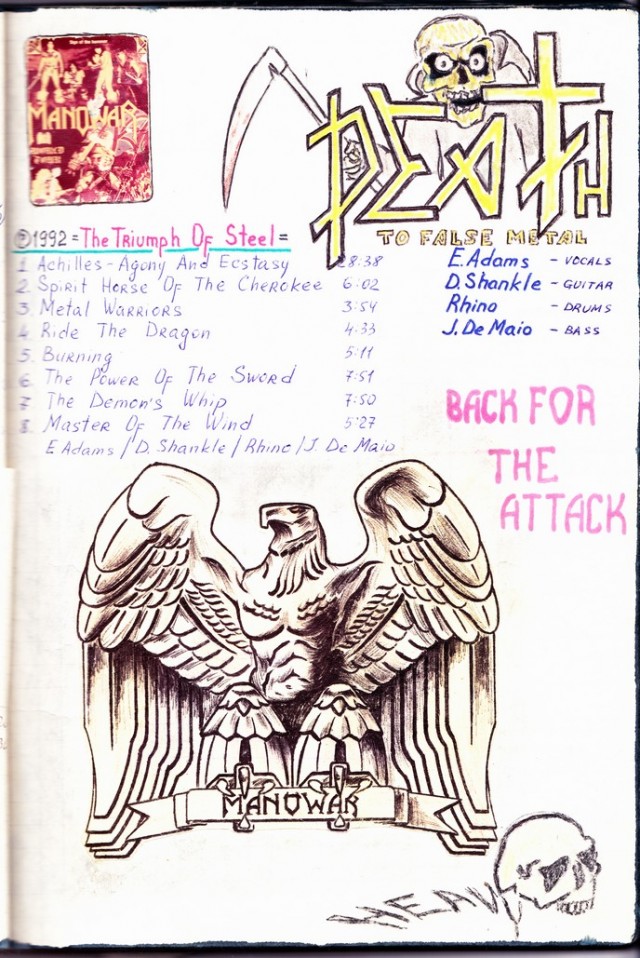 MANOWAR
DEATH
TO FALSE METAL
℗1992 = The Triumph Of Steel =
1. Achilles - Agony And Ecstasy 28:38
2. Spirit Horse Of The Cherokee 6:02
3. Metal Warriors 3:54
4. Ride The Dragon 4:33
5. Burning 5:11
6. The Power Of The Sword 7:51
7. The Demon's Whip 7:50
8. Master Of The Wind 5:27
E Adams / D. Shankle / Rhino / J. De Maio
E. Adams - VOCALS
D. Shankle - GUITAR
Rhino - DRUMS
J. De Maio - BASS
BACK FOR
THE
ATTACK
MANOWAR
HEAVY